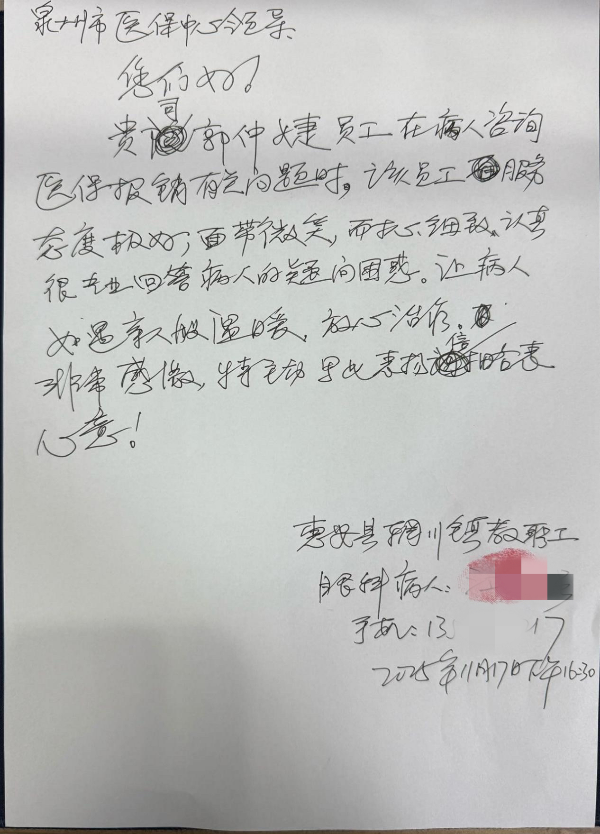 泉州市医保中心领导:
您们好!
贵司郭仲婕员工在病人咨询
医保报销有关问题时。该员工服务
态度极好;面带微笑,而扎心细致、认真
很专业回答病人的疑问困惑。让病人
如遇亲人般温暖,放心治疗。
非常感激,特主动写此表扬信略表
心意!
惠安县辋川镇教职工
眼科病人:
手机:13 17
2025年11月17日下午16:30